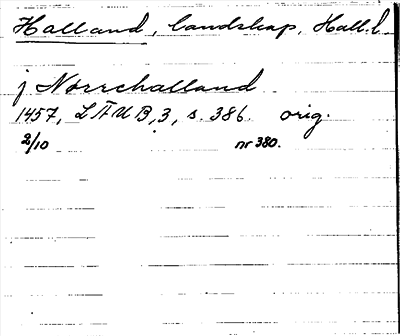 Halland, landskap, Hall. l
j Norrehalland
1457, LÄUB, 3, s. 386. orig.
2/10 nr 380.